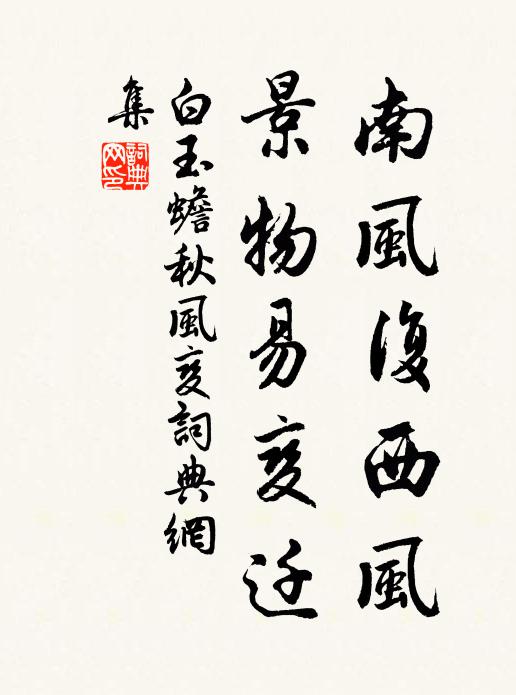 南風復西風
景物易变迁
白玉蟾秋風变詞典網
集
詞典网印